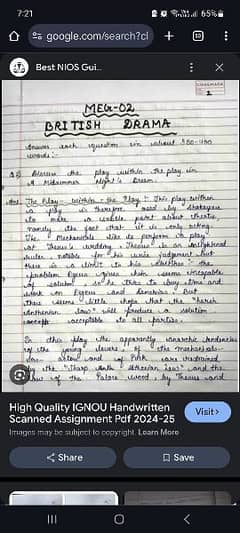 7:21
65%
google.com/search?cl
Best NIOS Gui...
1
MEG-02
BRITISH DRAMA
Answer each question in about 350-400
words:-
Discuss the play within the play in
A Midsummer Night's Dream.
Ans: The Play within the Play: This play within
a play is therefore used by Shakespeare
to make a subtle point about theatre,
namely the fact that it is only acting.
The Mechanicals perform a play
at Theseus's wedding. Theseus is an enlightened
ruler, notable for his wise judgement but
there is a limit to his
problem Egeus gives him seems incapable
of solution, so he tries to buy time and
work on Egeus and Demetrius. But
there seems little hope that the "harsh
Athenian law" will produce a solution
acceptable to all parties.
In this play the apparently anarchic tendencies
of the young lovers, of the mechanicals
and of Puck are restrained
by the "sharp Athenian law" and the
law of the Palace wood by Theseus and
High Quality IGNOU Handwritten
Scanned Assignment Pdf 2024-25
Visit>
Images may be subject to copyright. Learn More
Share
Save